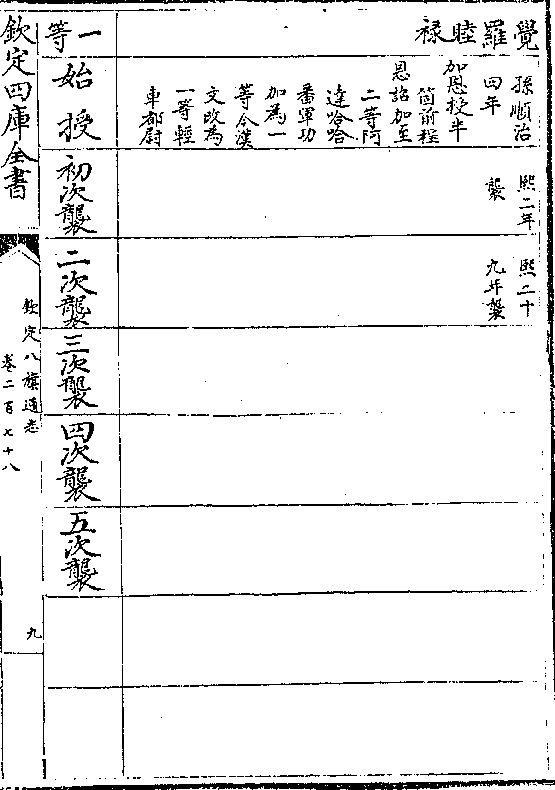 覺羅睦祿
孫順治
四年
加恩授半
箇前程
恩詔加至
二等阿
達哈哈
番軍功
加為一
等今漢
文改為
一等輕
車都尉
熙二年
襲
熙二十
九年襲
一等
始授
初次襲
二次襲
三次襲
四次襲
五次襲
欽定四庫全書
欽定八旗通志
卷二百七十八
九